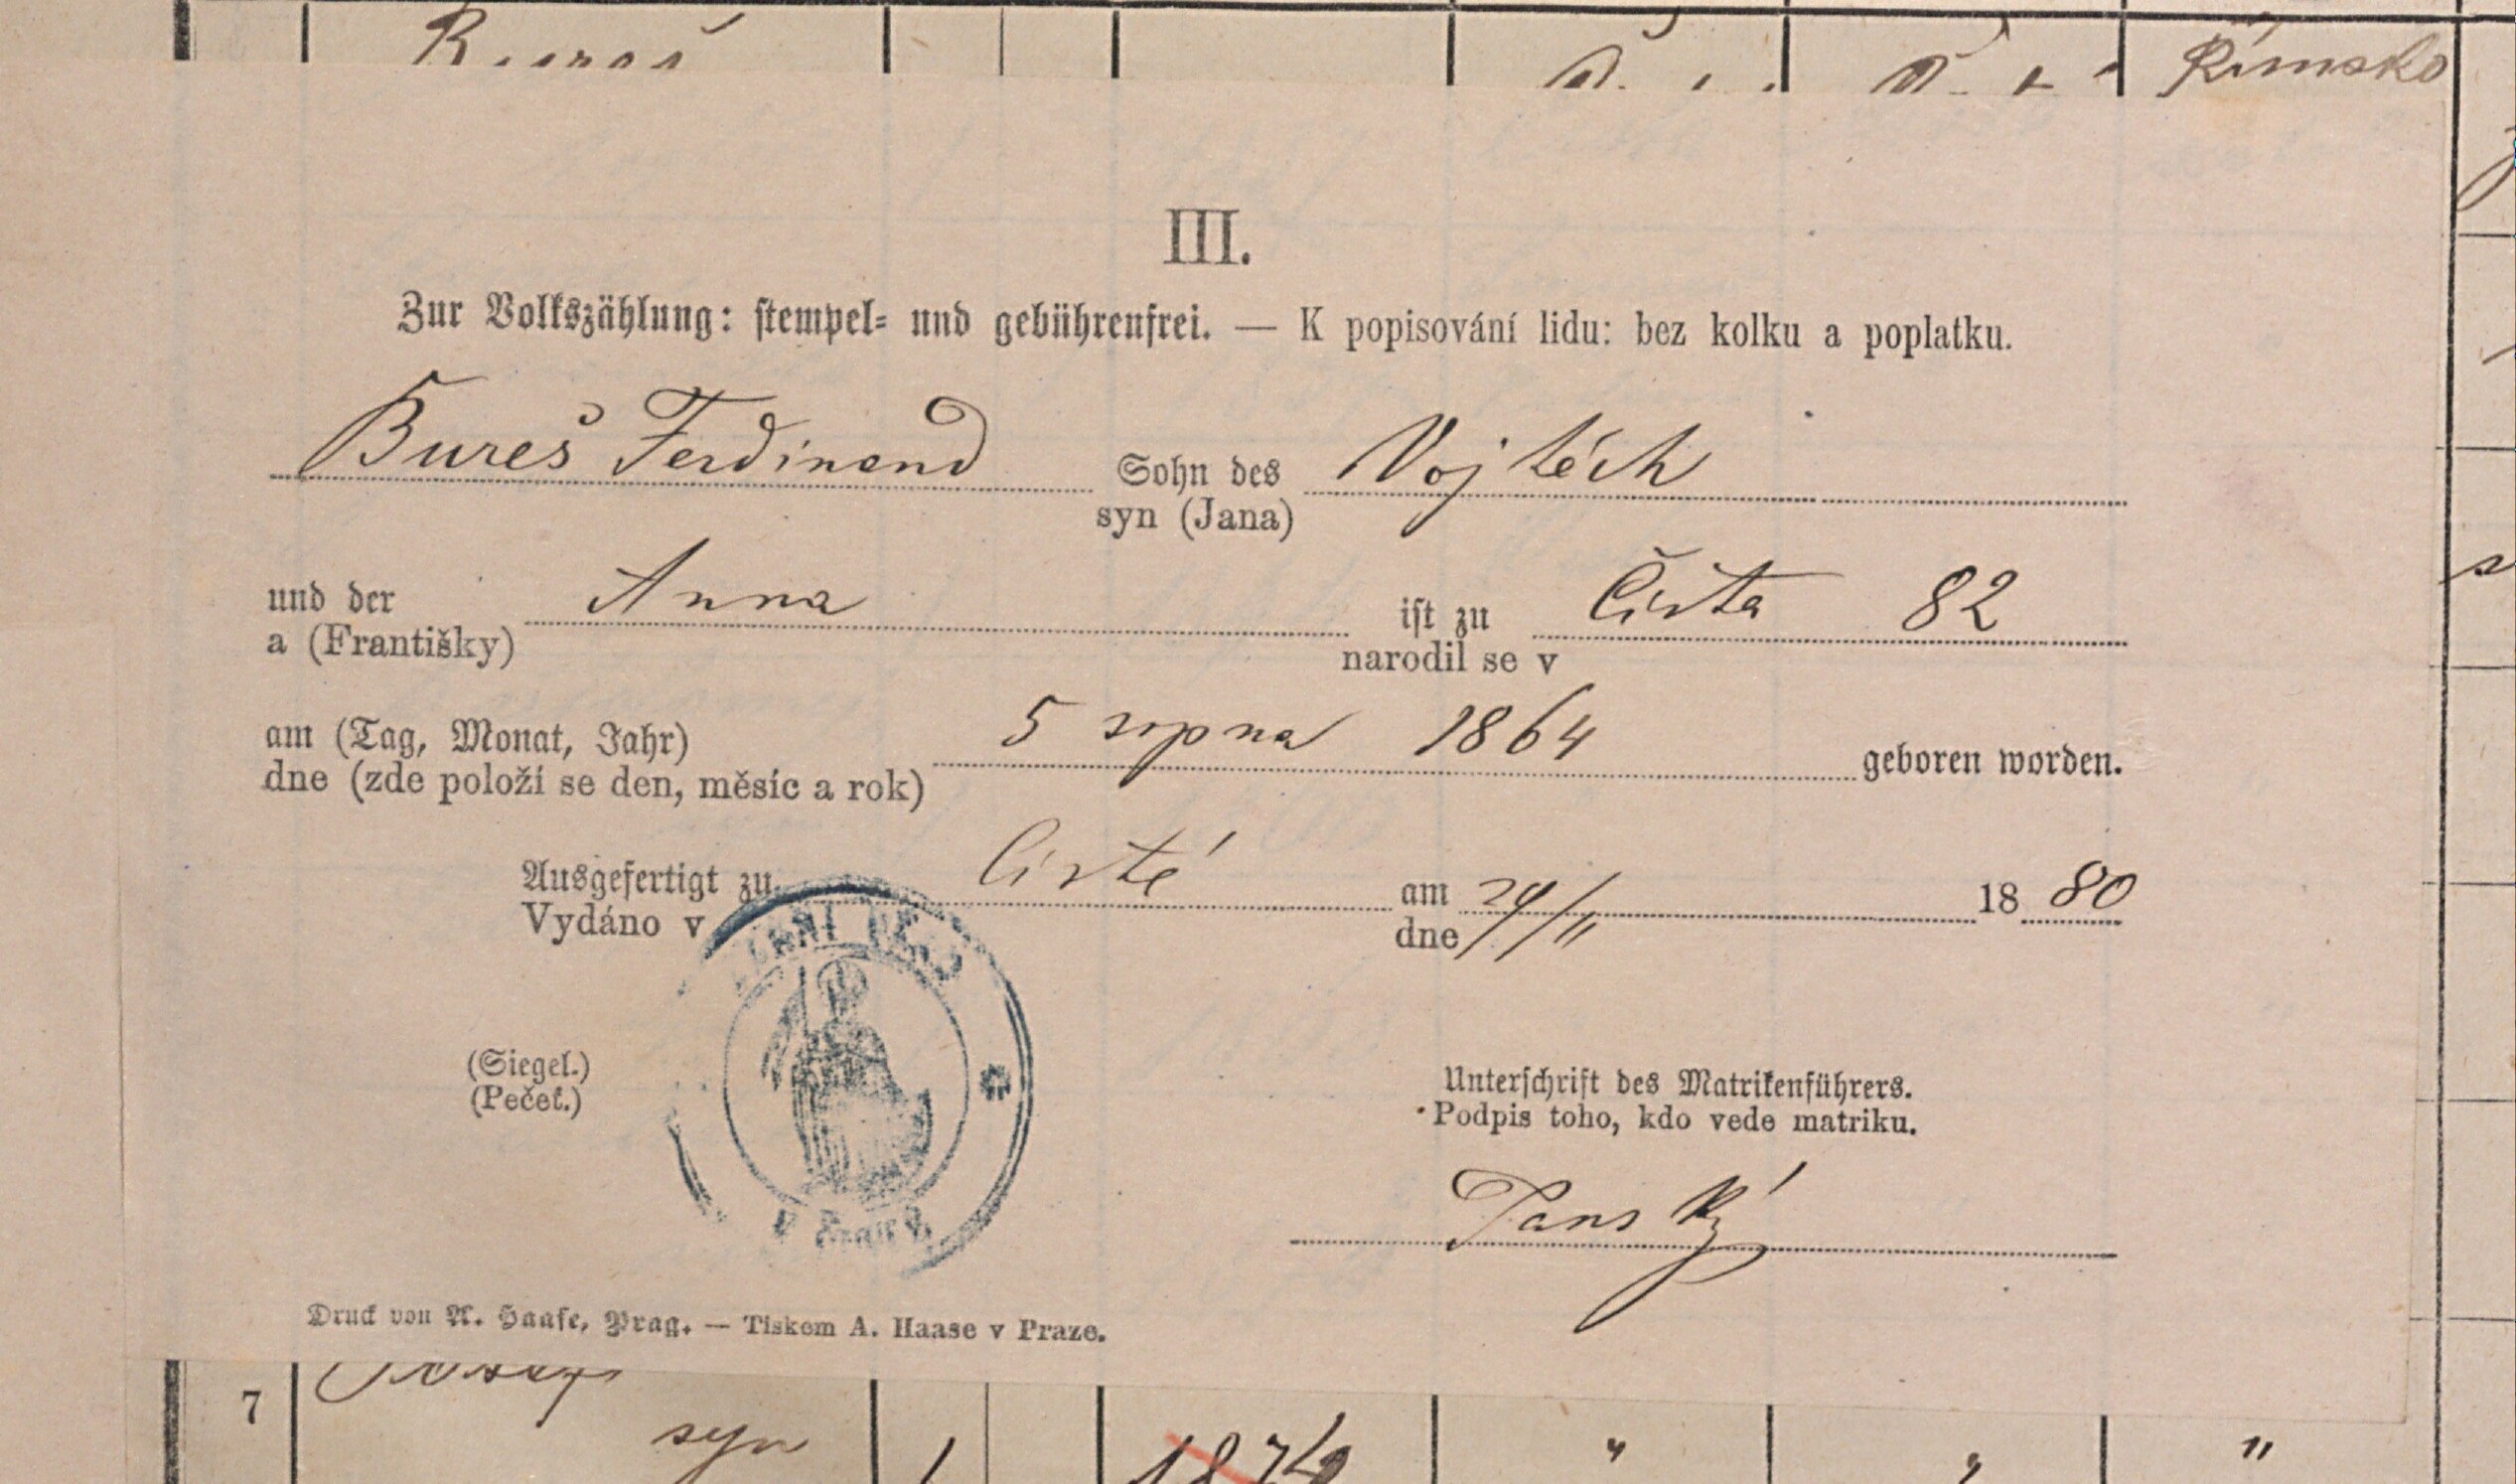 Římsko
III.
Zur Volkszählung: stempel- und gebührenfrei. — K popisování lidu: bez kolku a poplatku.
Bureš Ferdinand Sohn des Vojtěch
syn (Jana)
und der Anna ist zu Čista 82
a (Františky) narodil se v
am (Tag, Monat, Jahr) 5 srpna 1864 geboren worden.
dne (zde položí se den, měsíc a rok)
Ausgefertigt zu Čisté am 29/11 18 80
Vydáno v dne
(Siegel.)
(Pečeť.)
Unterschrift des Matrikenführers.
Podpis toho, kdo vede matriku.
Janský
Druck von A. Haase, Prag. — Tiskem A. Haase v Praze.
7
syn 1 1874 " " "